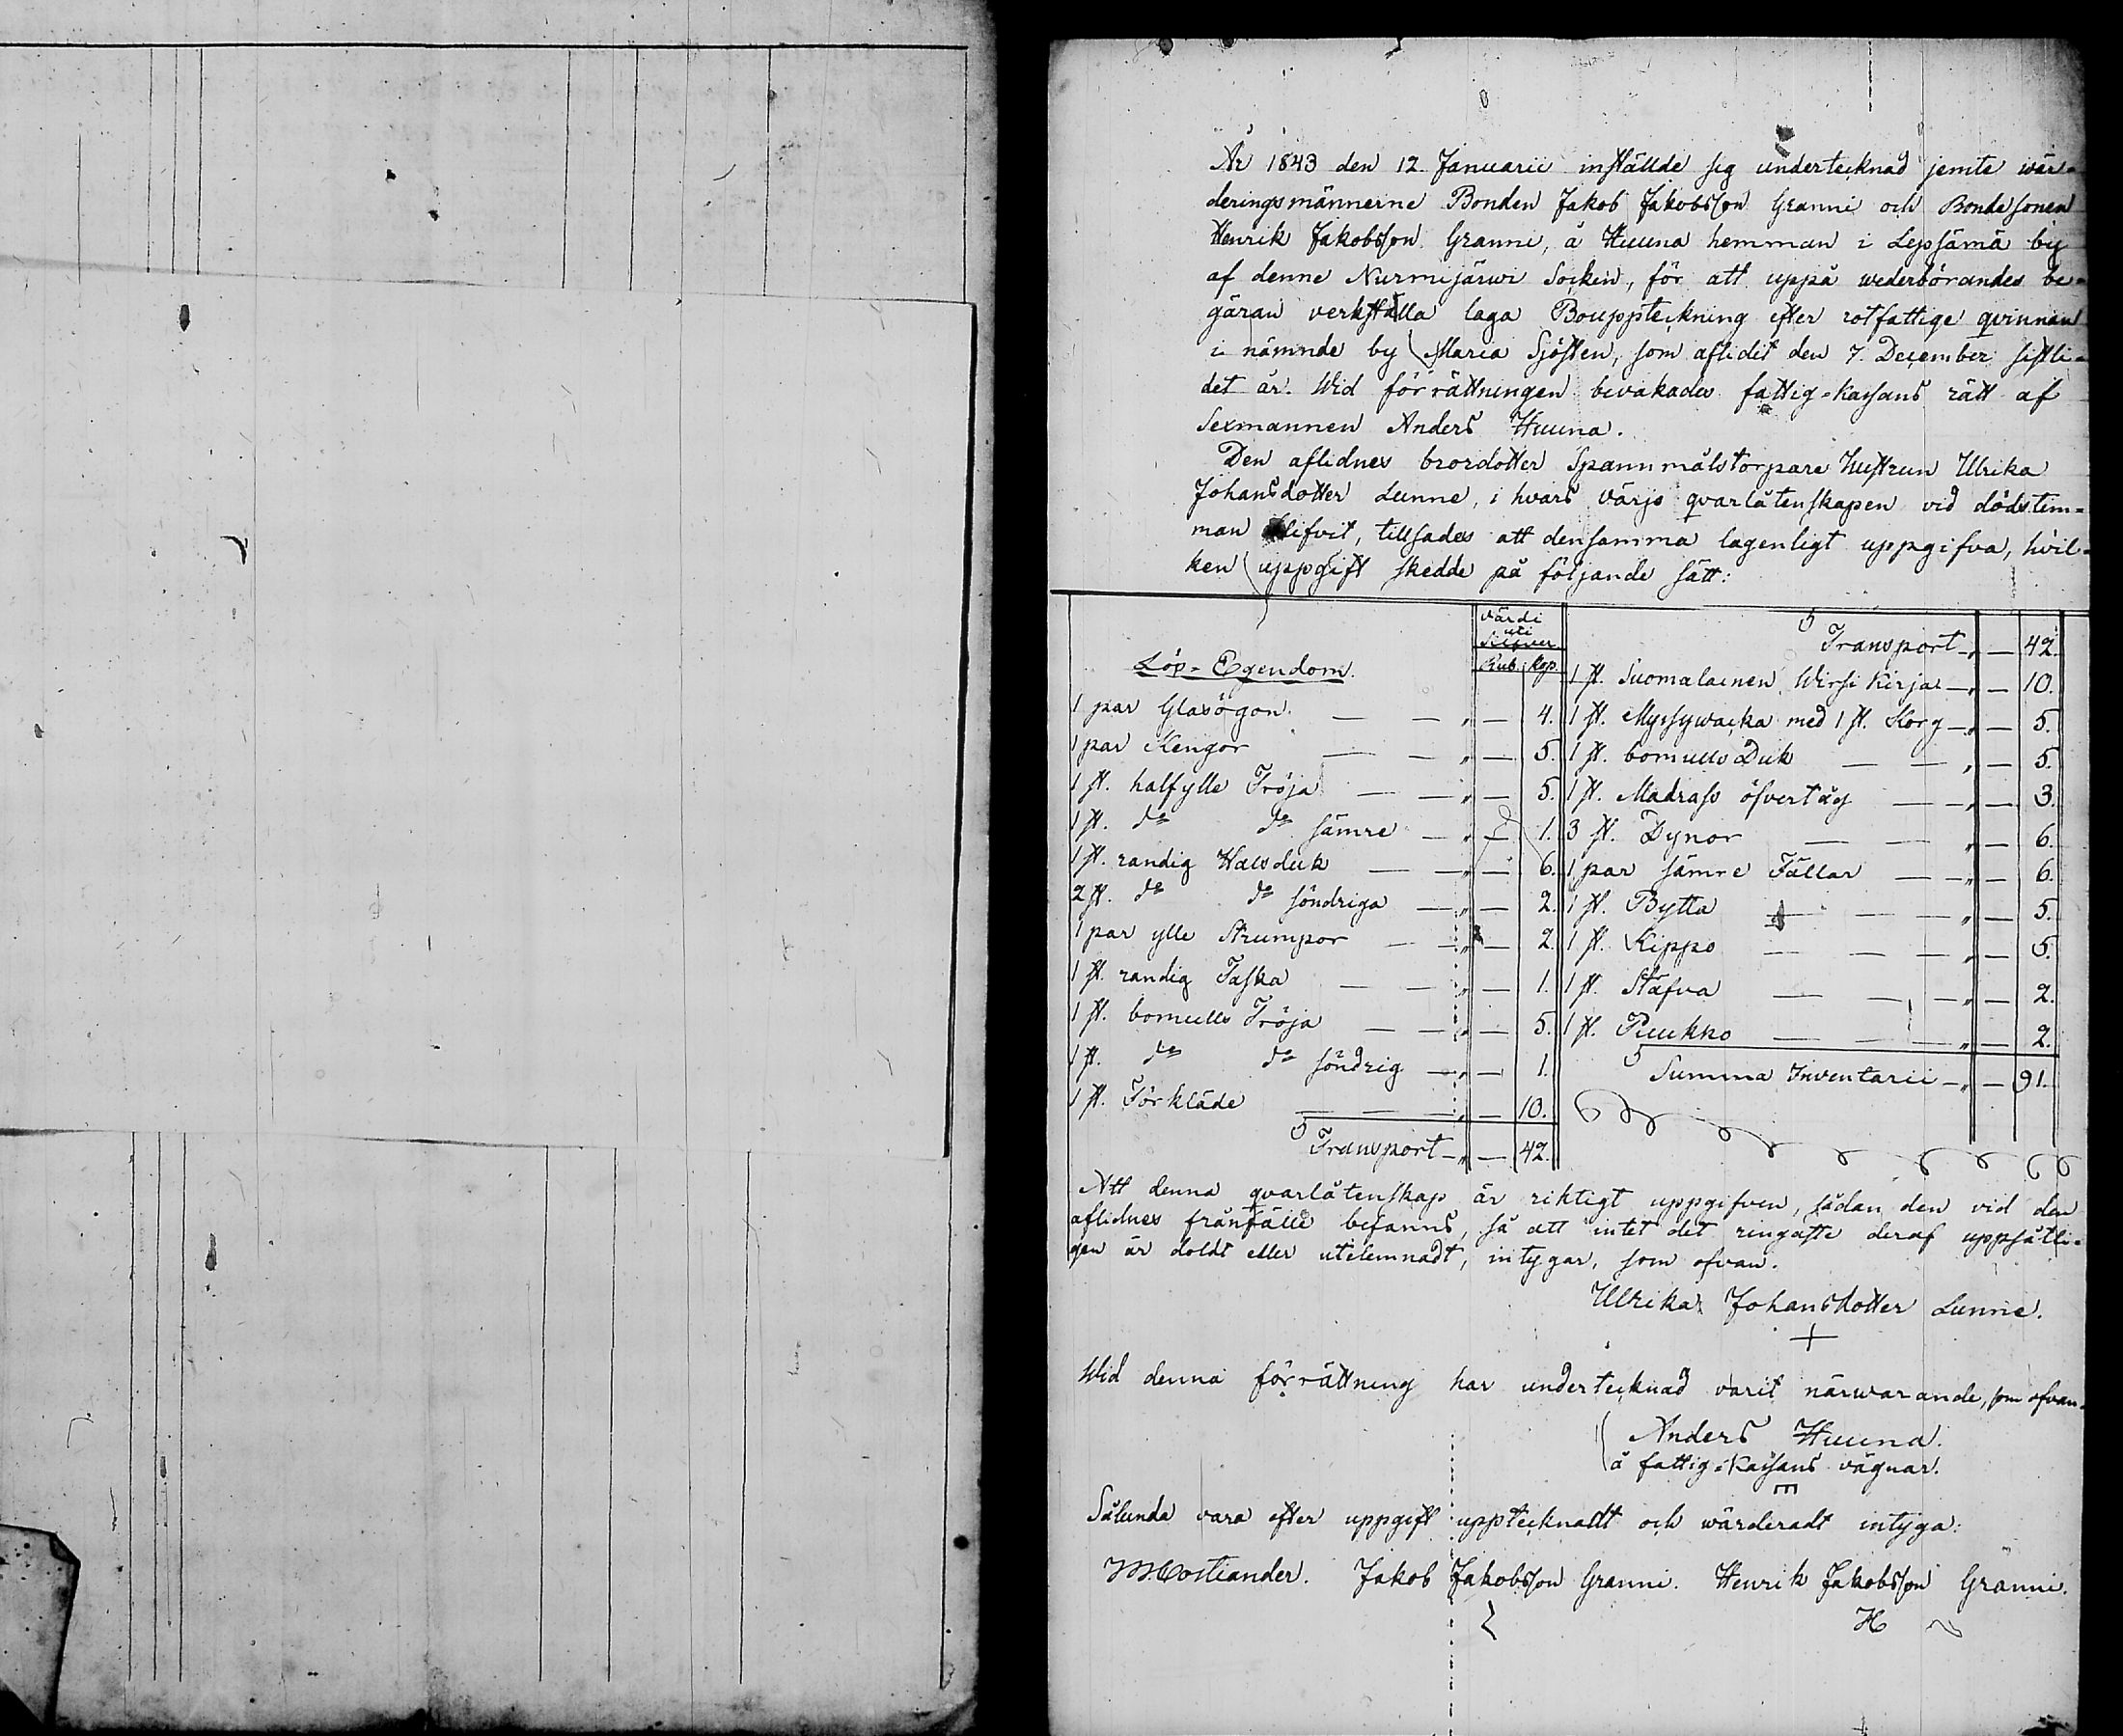 År 1843 den 12 Januarii inställde sig undertecknad jemte wär-
deringsmännerne Bonden Jakob Jakobsson Granni och Bondesonen
Henrik Jakobsson Granni, å Huuna hemman i Lepsämä by
af denne Nurmijärwi Socken, för att uppå wederbörandes be-
gäran verkställa laga Bouppteckning efter rotfattige qvinnan
i nämnde by Maria Sjösten, som aflidit den 7. December sistli-
det år. Wid förrättningen bevakades fattig-Kassans rätt af
Sexmannen Anders Huuna.
Den aflidnes brordotter Spannmålstorpare Hustrun Ulrika
Johansdotter Lunne, i hvars värjo qvarlåtenskapen vid dödstim-
man blifvit, tillsades att densamma lagenligt uppgifva, hvil-
ken uppgift skedde på följande sätt:
värdi
uti
Silfver
Lös-Egendom. Rub. Kop.
1 par Glasögon — — „ — 4.
1 par Kengor — — „ — 5.
1 st. halfylle Tröja — — „ — 5.
1 st. do do sämre — „ — 1.
1 st. randig Halsduk — — „ — 6.
2 st. do do söndriga — „ — 2.
1 par ylle Strumpor — — „ — 2.
1 st. randig Taska — — „ — 1.
1 st. bomulls Tröja — — „ — 5.
1 st. do do söndrig — „ — 1.
1 st. Förkläde — — — „ — 10.
Transport — „ — 42.
Transport — „ — 42.
1 st. Suomalainen Wirsi Kirja — „ — 10.
1 st. Myssywacka med 1 st. Korg — „ — 5.
1 st. bomulls Duk — — „ — 5.
1 st. Madrass öfvertåg — — „ — 3.
3 st. Dynor — — „ — 6.
1 par sämre Fällar — — „ — 6.
1 st. Bytta — — — „ — 5.
1 st. Kippo — — — „ — 5.
1 st. Stäfva — — — „ — 2.
1 st. Puukko — — — „ — 2.
Summa Inventarii — „ — 91.
Att denna qvarlåtenskap är riktigt uppgifven, sådan den vid den
aflidnes frånfälle befanns, så att intet det ringaste deraf uppsåtli-
gen är doldt eller utelemnadt, intygar, som ofvan.
Ulrika Johansdotter Lunne.
+
Wid denna förrättning har undertecknad varit närwarande, som ofvan.
Anders Huuna.
å fattig-Kassans vägnar.
Sålunda vara efter uppgift upptecknadt och wärderadt intyga:
Costiander. Jakob Jakobsson Granni. Henrik Jakobsson Granni.